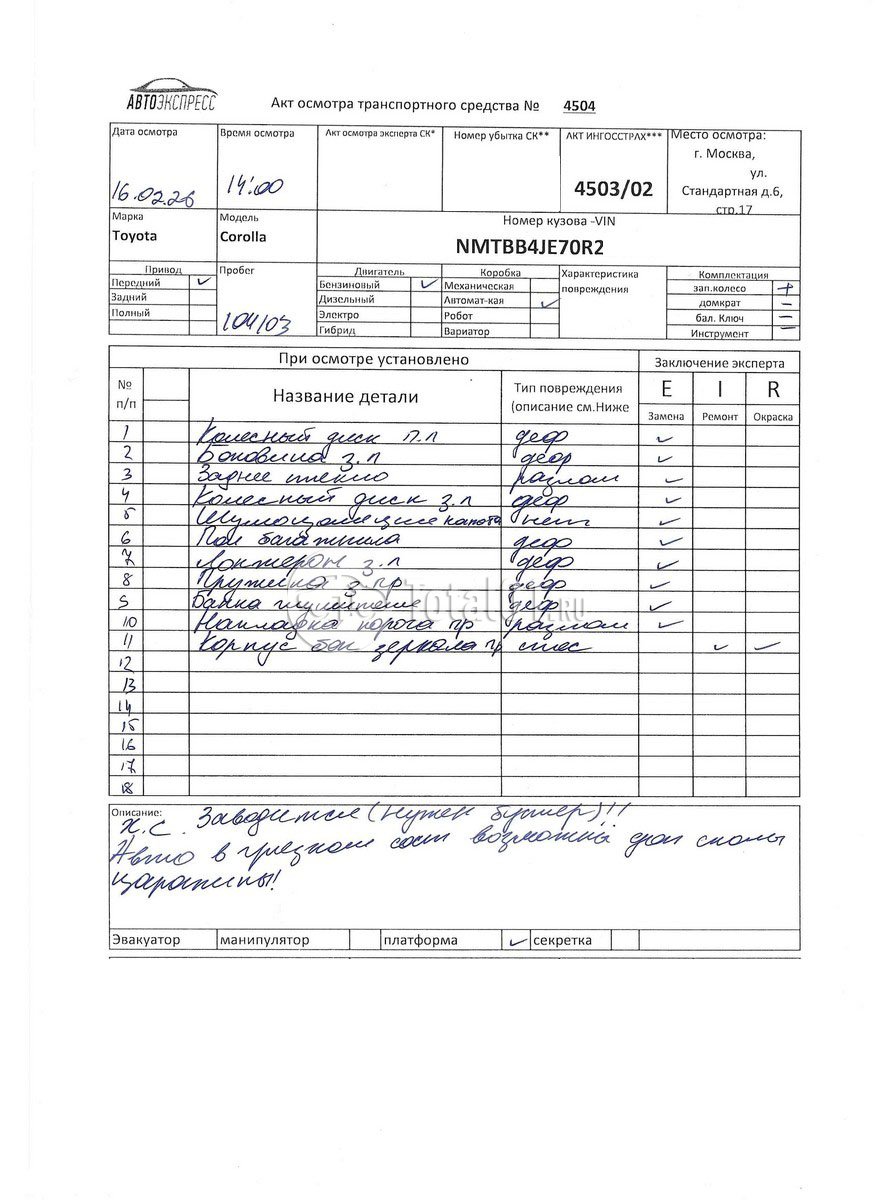 АВТОЭКСПРЕСС
Акт осмотра транспортного средства № 4504
Дата осмотра Время осмотра Акт осмотра эксперта СК* Номер убытка СК** АКТ ИНГОССТРАХ*** Место осмотра:
г. Москва,
ул.
16.02.26 14:00 4503/02 Стандартная д.6,
стр.17
Марка Модель Номер кузова -VIN
Toyota Corolla NMTBB4JE70R2
Привод Пробег Двигатель Коробка Характеристика Комплектация
Передний ✓ Бензиновый ✓ Механическая повреждения зап.колесо +
Задний Дизельный Автомат-кая ✓ домкрат –
Полный 104103 Электро Робот бал. Ключ –
Гибрид Вариатор Инструмент –
При осмотре установлено Заключение эксперта
№ п/п Название детали Тип повреждения (описание см.Ниже E I R
Замена Ремонт Окраска
1 Колесный диск п.л деф ✓
2 Боковина з.л деф ✓
3 Заднее стекло разлом ✓
4 Колесный диск з.л деф ✓
5 капота нет ✓
6 Пол багажника деф ✓
7 Лонжерон з.л деф ✓
8 Пружина з.пр деф ✓
9 Банка глушителя деф ✓
10 Накладка порога пр разлом ✓
11 Корпус бок зеркала пр ✓ ✓
12
13
14
15
16
17
18
TotalCar.RU
Описание:
Х.С. Заводится (нужен бустер)!!
Авто в грязном сост возможны доп сколы
царапины!
Эвакуатор манипулятор платформа ✓ секретка